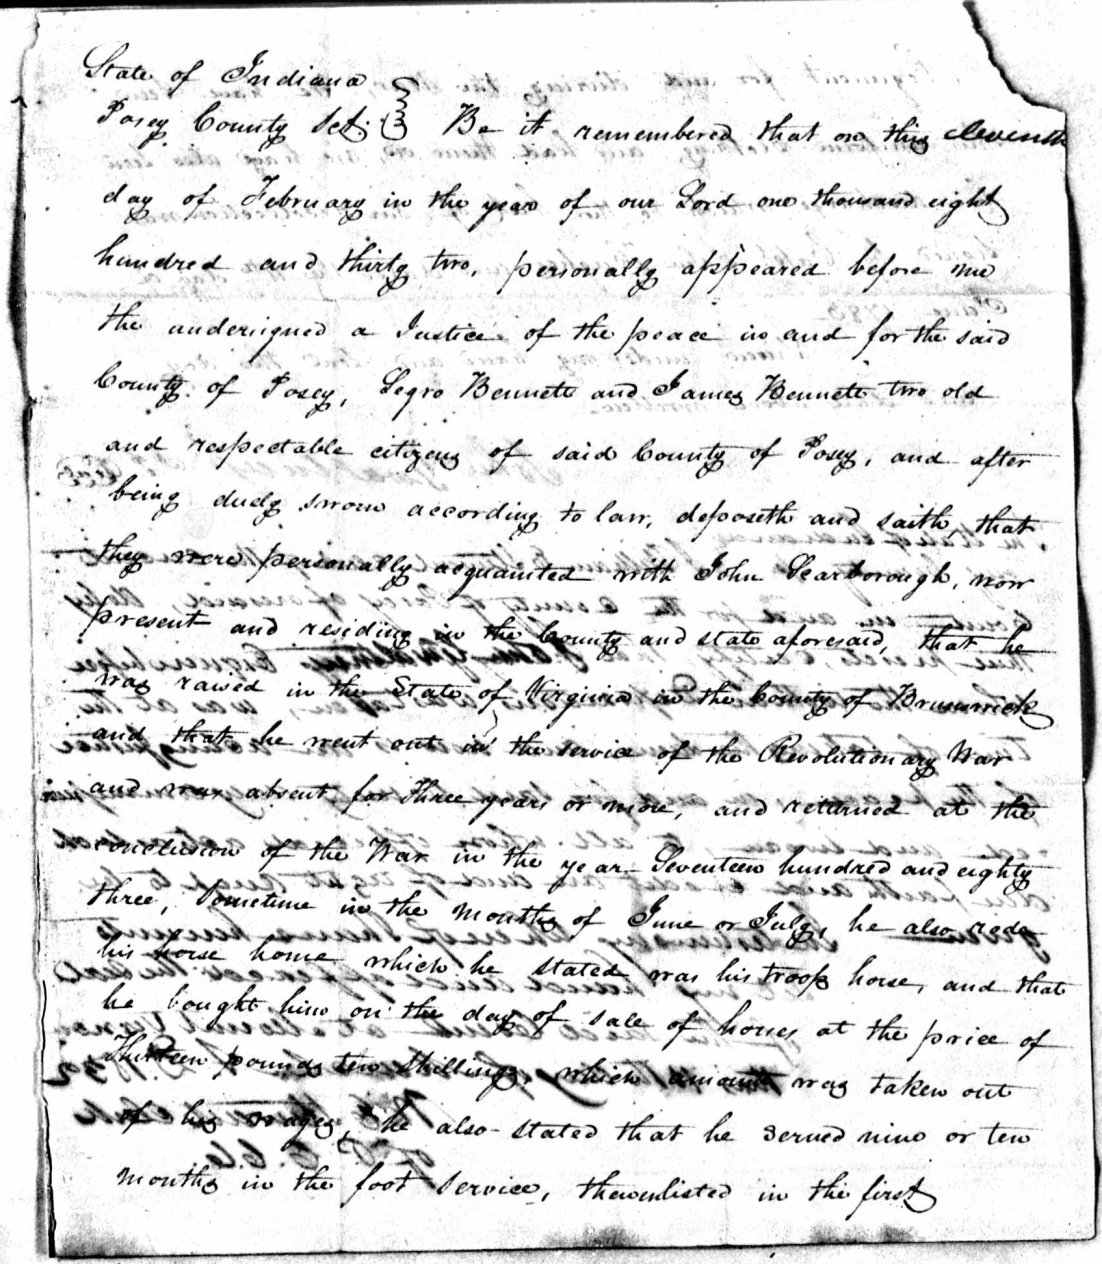 State of Indiana
Posey County Sct. Be it remembered that on this eleventh
day of February in the year of our Lord one thousand eight
hundred and thirty two, personally appeared before me
the undersigned a Justice of the peace in and for the said
County of Posey, Legro Bennett and James Bennett two old
and respectable citizens of said County of Posey, and after
being duely sworn according to law, deposeth and saith, that
they were personally acquainted with John Scarborough, now
present and residing in the County and state aforesaid, that he
was raised in the State of Virginia in the County of Brunswick
and that he went out in the service of the Revolutionary War
and was absent for three years or more, and returned at the
conclusion of the War in the year Seventeen hundred and eighty
three, Sometime in the months of June or July, he also rode
his horse home which he stated was his troop horse, and that
he bought him on the day of sale of horses at the price of
Thirteen pounds ten Shillings, which amount was taken out
of his wages, he also stated that he served nine or ten
months in the foot Service, then enlisted in the first